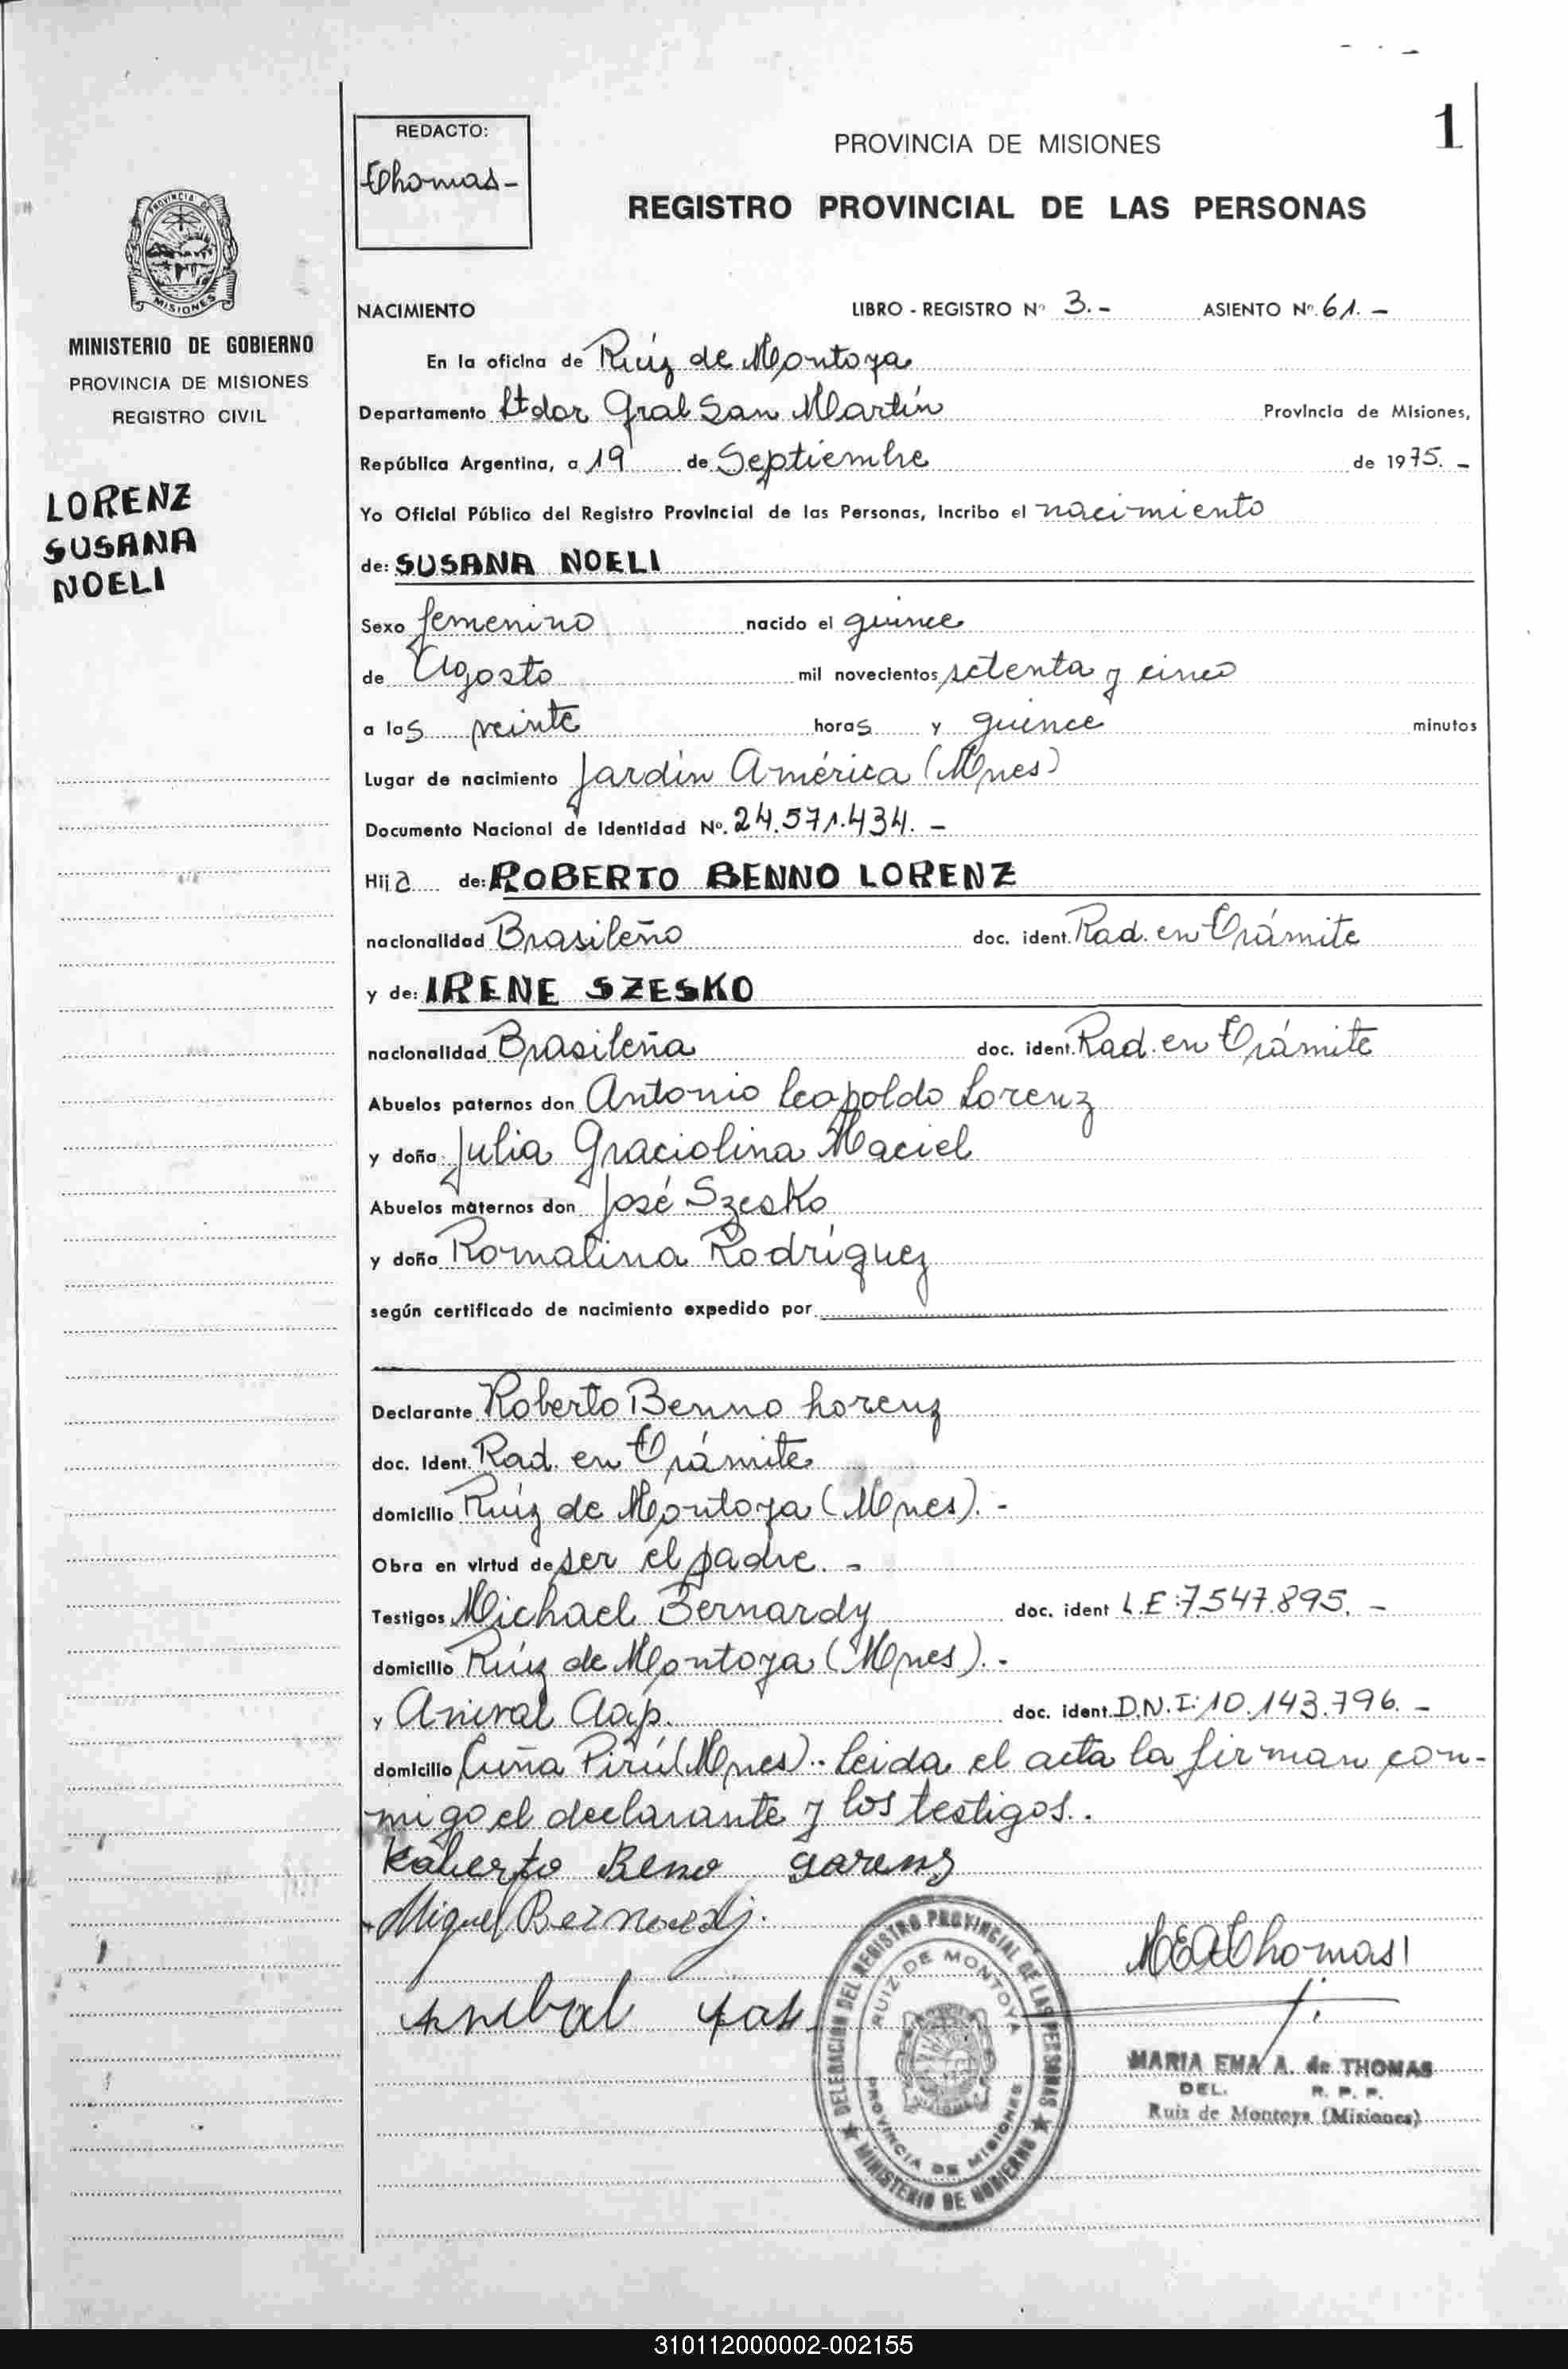 REDACTO:
Thomas-
1
PROVINCIA DE MISIONES
REGISTRO PROVINCIAL DE LAS PERSONAS
PROVINCIA DE
MISIONES
MINISTERIO DE GOBIERNO
PROVINCIA DE MISIONES
REGISTRO CIVIL
LORENZ
SUSANA
NOELI
NACIMIENTO LIBRO - REGISTRO Nº 3.- ASIENTO Nº 61.-
En la oficina de Ruíz de Montoya
Departamento Ltdor Gral San Martín Provincia de Misiones,
República Argentina, a 19 de Septiembre de 1975.-
Yo Oficial Público del Registro Provincial de las Personas, Incribo el nacimiento
de: SUSANA NOELI
Sexo femenino nacido el quince
de Agosto mil novecientos setenta y cinco
a las veinte horas y quince minutos
Lugar de nacimiento Jardín América (Mnes)
Documento Nacional de Identidad Nº. 24.571.434.-
Hija de: ROBERTO BENNO LORENZ
nacionalidad Brasileño doc. ident. Rad. en Trámite
y de: IRENE SZESKO
nacionalidad Brasileña doc. ident. Rad. en Trámite
Abuelos paternos don Antonio Leopoldo Lorenz
y doña Julia Graciolina Maciel
Abuelos maternos don José Szesko
y doña Romalina Rodríguez
según certificado de nacimiento expedido por
Declarante Roberto Benno Lorenz
doc. Ident. Rad. en Trámite
domicilio Ruíz de Montoya (Mnes).-
Obra en virtud de ser el padre.-
Testigos Michael Bernardy doc. ident L.E:7.547.895.-
domicilio Ruíz de Montoya (Mnes).-
y Anival Aap. doc. ident. D.N.I:10.143.796.-
domicilio Cuña Pirú (Mnes).- Leida el acta la firman con-
migo el declarante y los testigos.-
Roberto Beno Lorenz
Miguel Bernardy.
Anibal
MEAThomas
DELEGACION DEL REGISTRO PROVINCIAL DE LAS PERSONAS
RUIZ DE MONTOYA
PROVINCIA DE MISIONES
MINISTERIO DE GOBIERNO
MARIA EMA A. de THOMAS
DEL. R. P. P.
Ruiz de Montoya (Misiones)
310112000002-002155